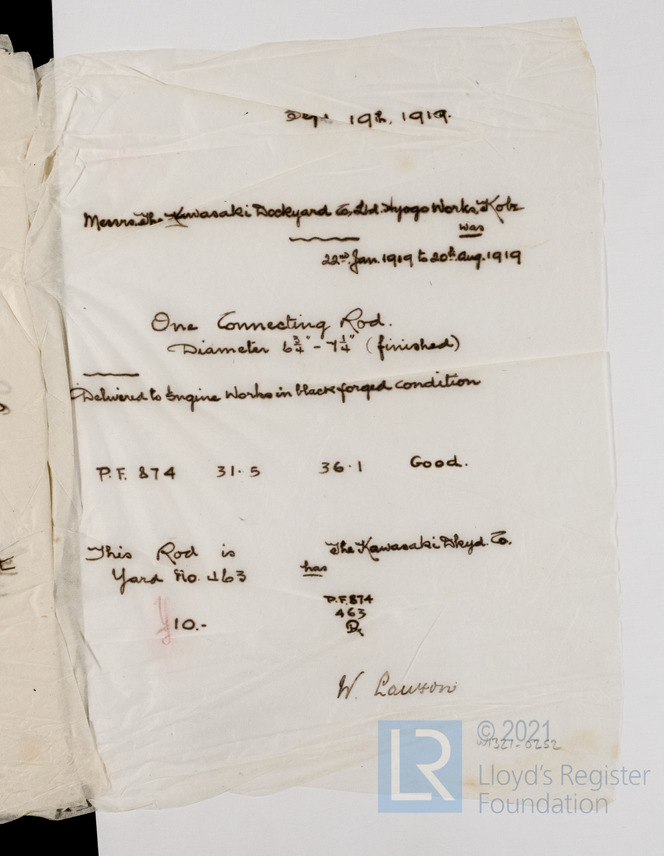 Sept. 19th, 1919.
Messrs. The Kawasaki Dockyard Co, Ltd. Hyogo Works, Kobe
was
22nd Jan. 1919 to 20th Aug. 1919
One Connecting Rod.
Diameter 6 3/4" - 7 1/4" (finished)
Delivered to Engine Works in black forged condition
P.F. 874 31.5 36.1 Good.
This Rod is The Kawasaki Dkyd. Co.
Yard No. 463 has
¥10.- P.F. 874
463
W. Lawson
© 2021
W1327-0252
LR
Lloyd's Register
Foundation